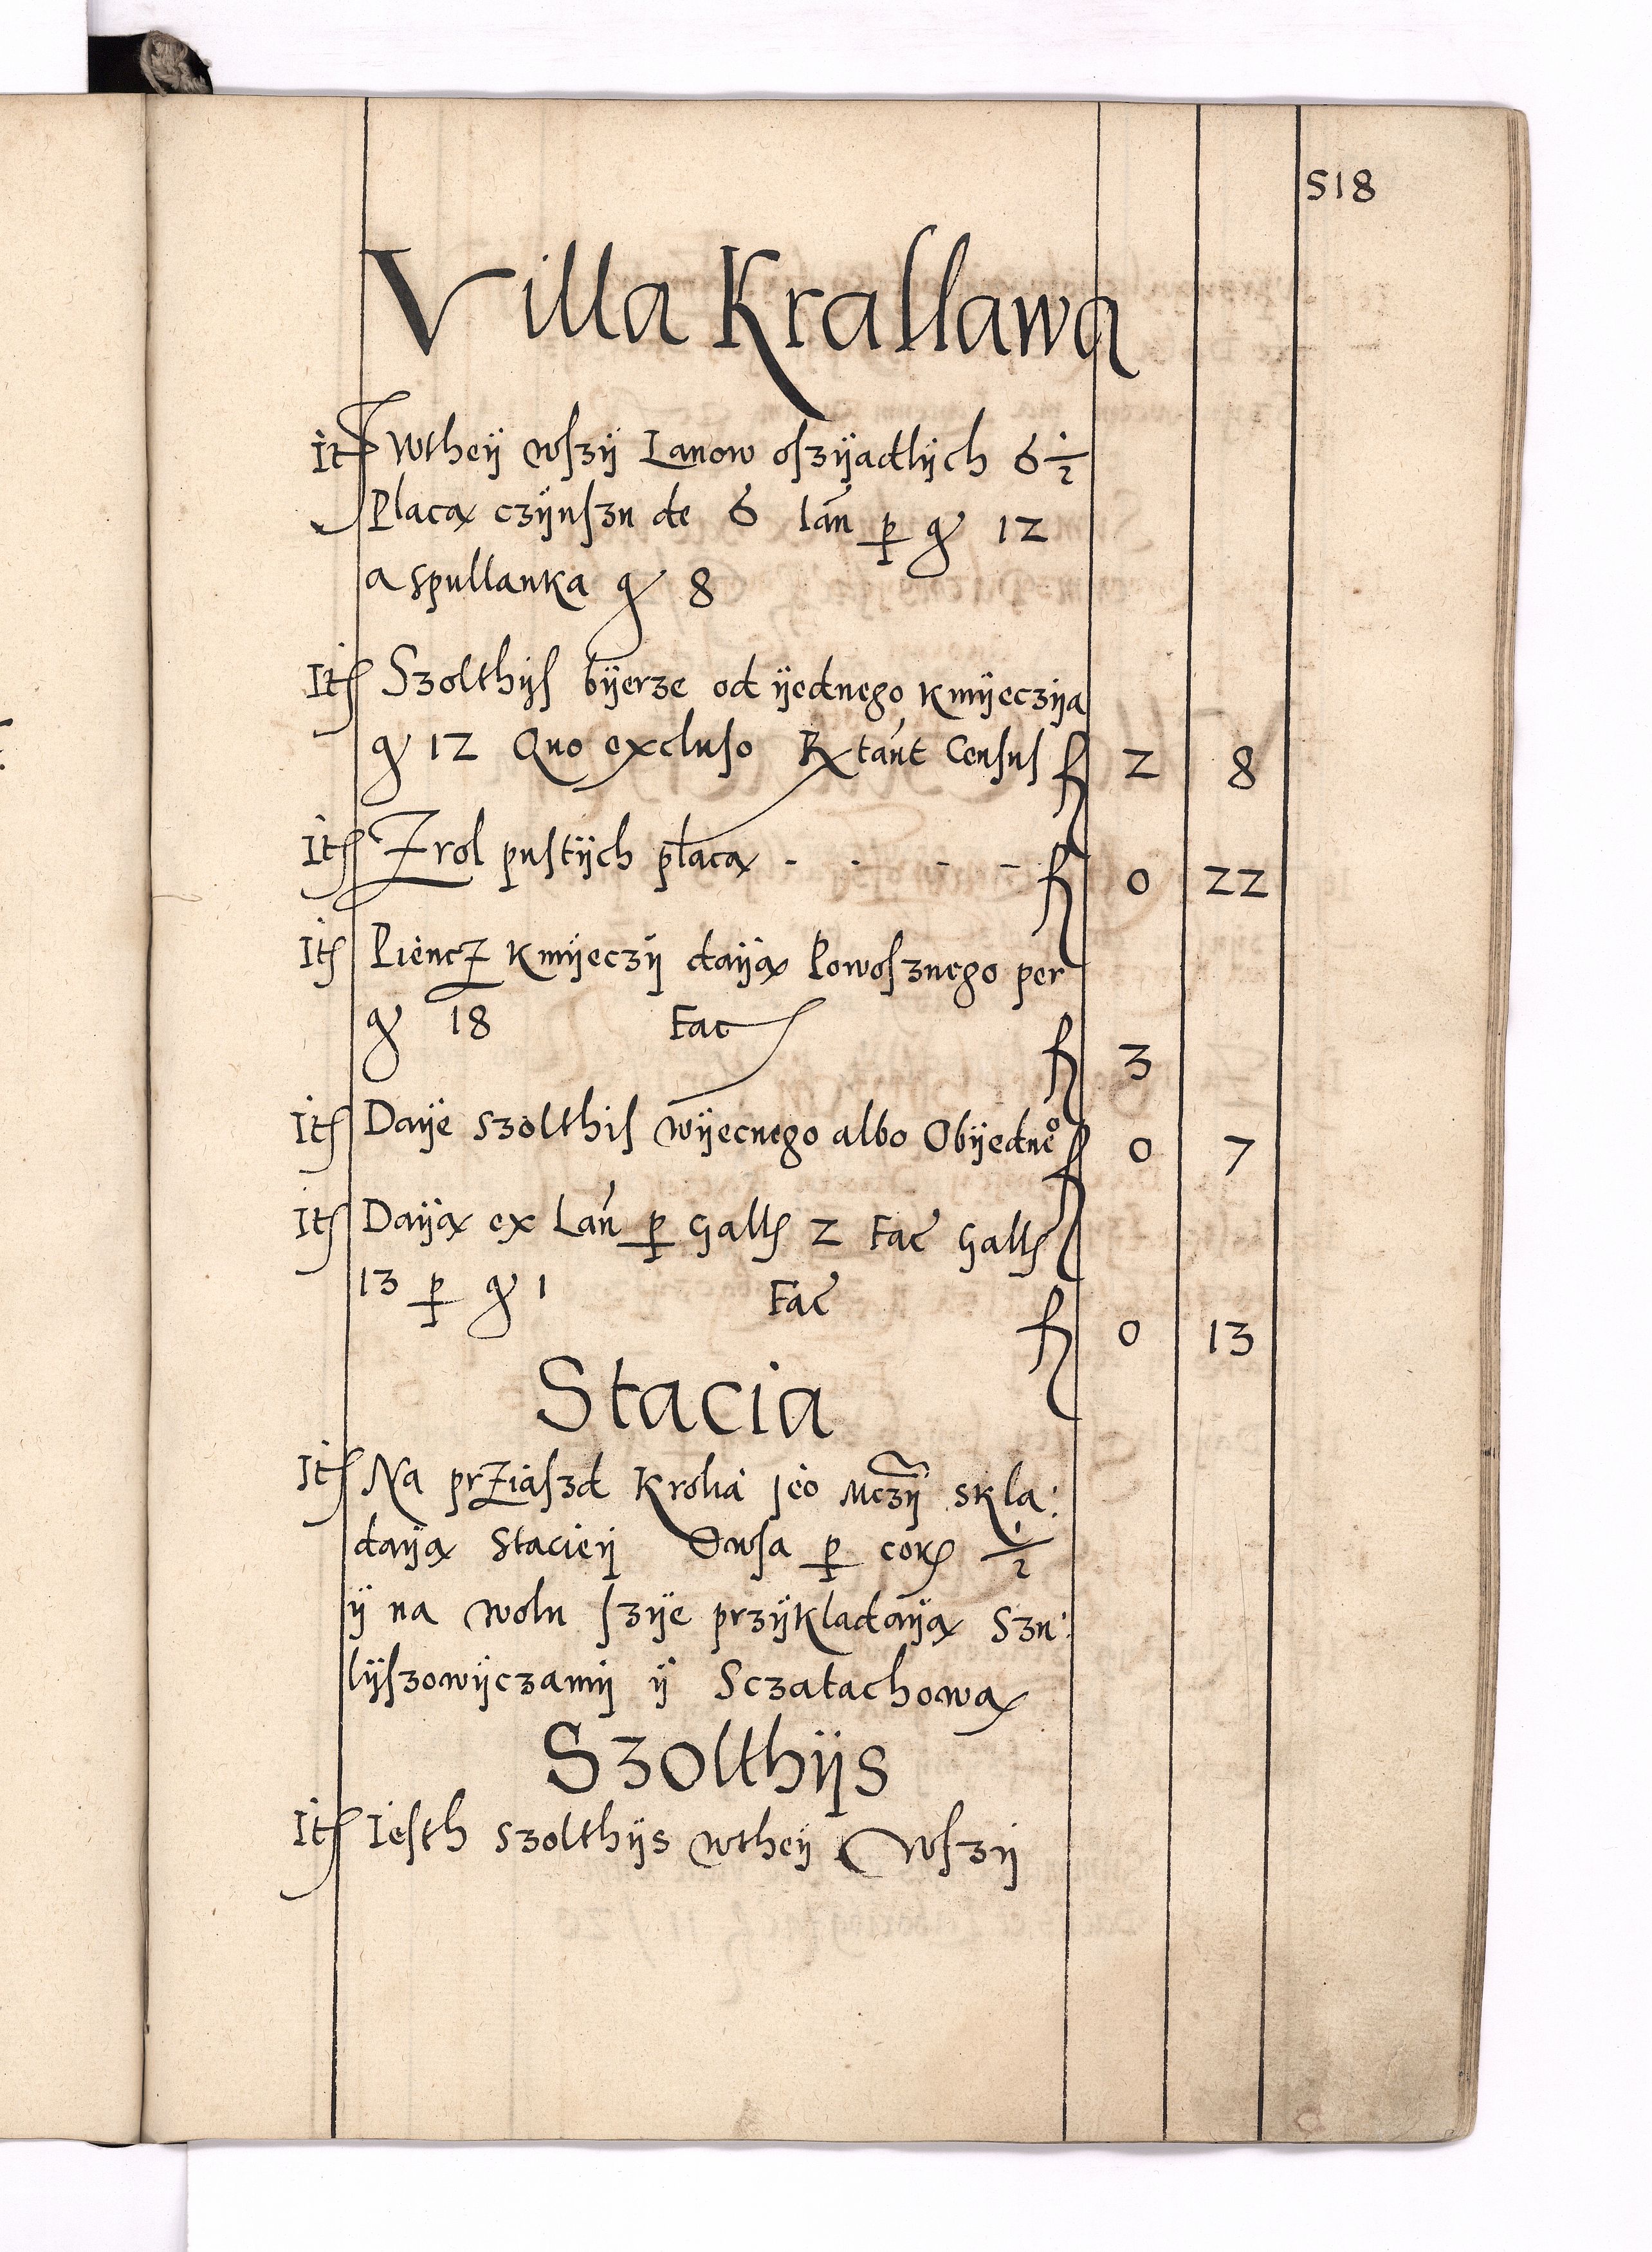 518
Villa Krallawa
It Wtheÿ wſzÿ Lanow oſzÿadlÿch 6 1/2
Placą czÿnſzu de 6 lan̄ ꝑ gͬ 12
a spullanka gͬ 8
Itꝭ Szolthÿſ bÿerze od ÿednego kmÿeczÿa
gͬ 12 Quo excluso Rx̄tant Censuſ fl 2 8
Itꝭ Zrol puſtÿch płacą - - - - fl 0 22
Itꝭ Piencz kmÿeczÿ daÿą Powoſznego per
gͬ 18 Facꝭ fl 3
Itꝭ Daÿe szolthiſ wÿecnego albo Obÿedne° fl 0 7
Itꝭ Daÿą ex Lan̄ ꝑ Gallꝭ 2 Fac̄ Gallꝭ
13 ꝑ gͬ 1 Fac̄ fl 0 13
Stacia
Itꝭ Na prziaſzd Krolia jeo Mczÿ skla:
daÿą Stacieÿ Owſa ꝑ corꝭ 1/2
ÿ na wolu ſzÿe przÿkladaÿą Szu:
lÿſzowÿczamÿ ÿ Sczatachową
Szolthÿs
Itꝭ Ieſth szolthÿs wtheÿ Wſzÿ